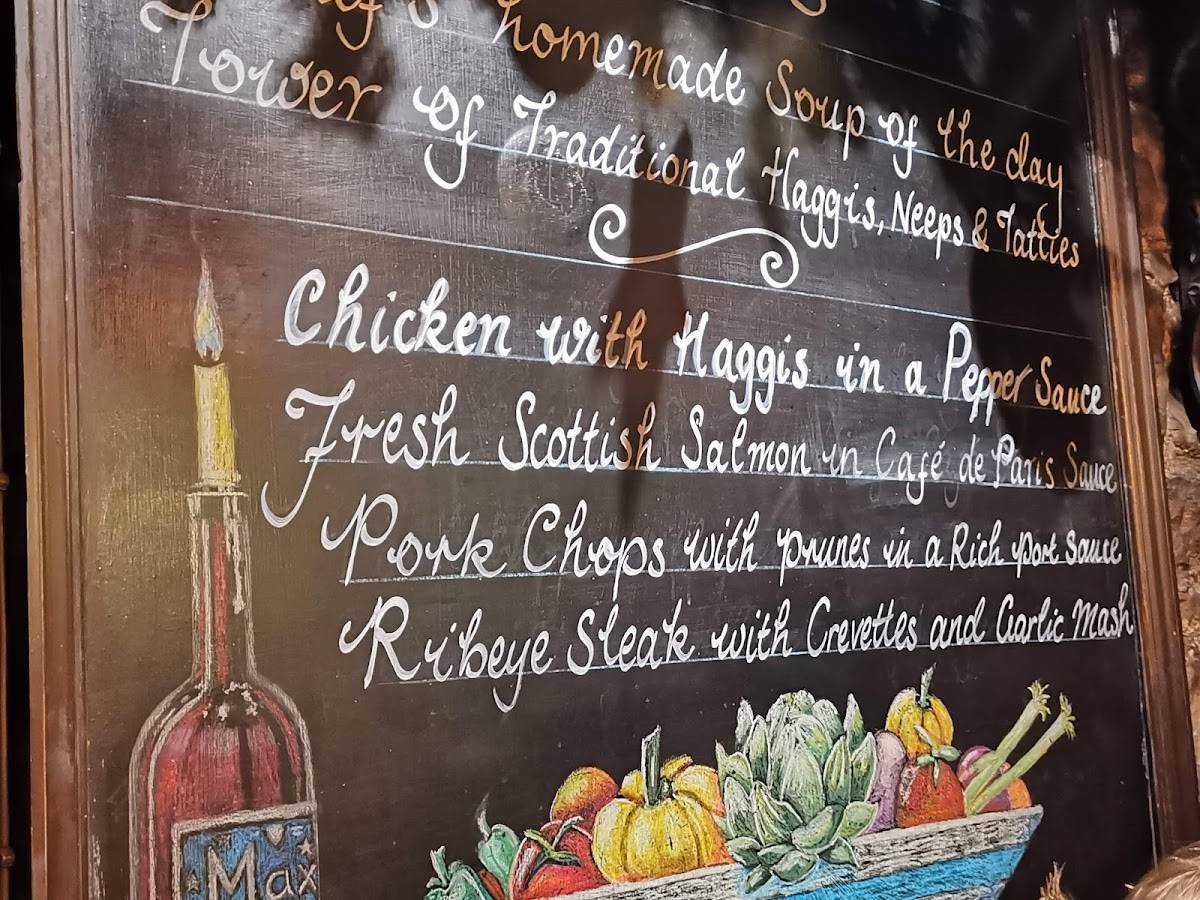 homemade Soup of the day
Tower of Traditional Haggis, Neeps & Tatties
Chicken with Haggis in a Pepper Sauce
Fresh Scottish Salmon in Café de Paris Sauce
Pork Chops with prunes in a Rich port sauce
Ribeye Steak with Crevettes and Garlic Mash
Max